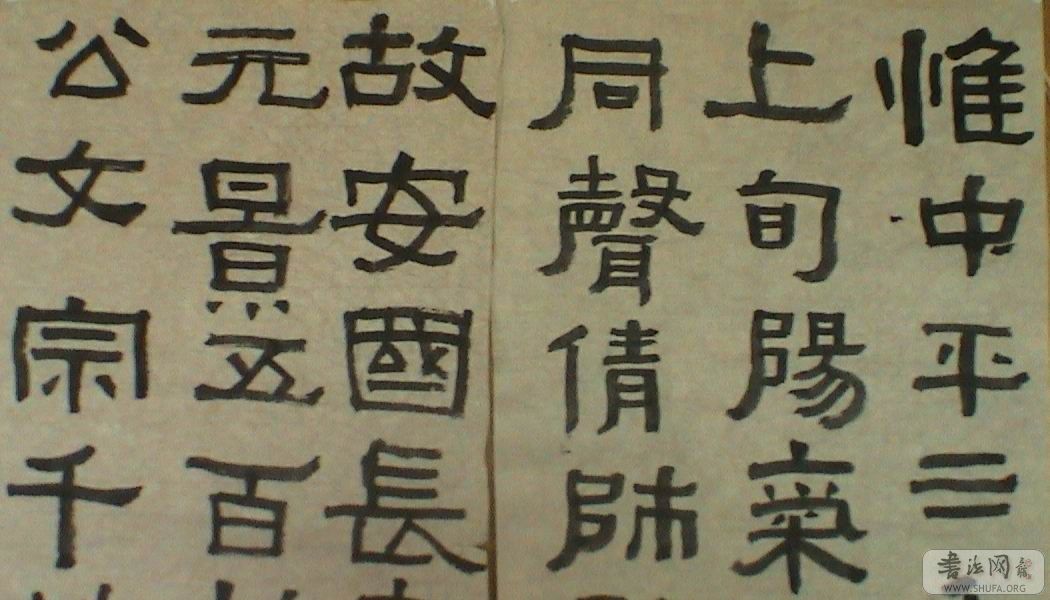 惟中平三
上旬陽氣
同聲倩師
故安國長
元景五百
公文宗千
書法网
WWW.SHUFA.ORG